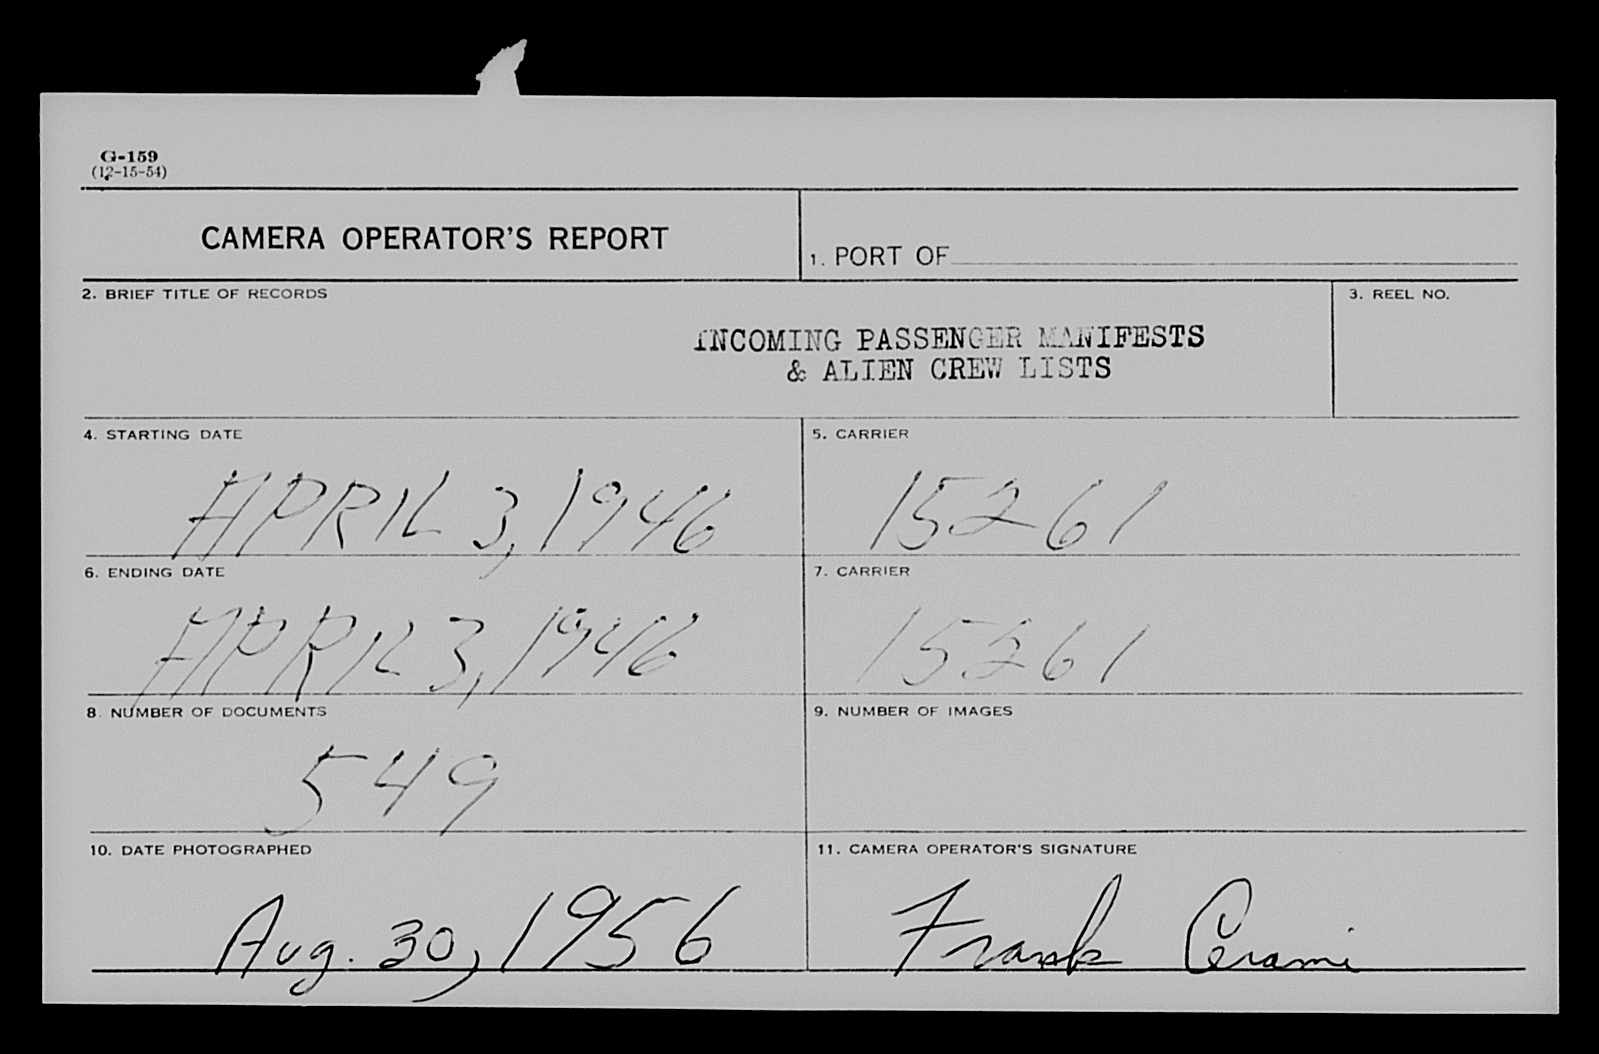 G-159
(12-15-54)
CAMERA OPERATOR'S REPORT
1. PORT OF
2. BRIEF TITLE OF RECORDS
INCOMING PASSENGER MANIFESTS
& ALIEN CREW LISTS
3. REEL NO.
4. STARTING DATE
APRIL 3, 1946
5. CARRIER
15261
6. ENDING DATE
APRIL 3, 1946
7. CARRIER
15261
8. NUMBER OF DOCUMENTS
549
9. NUMBER OF IMAGES
10. DATE PHOTOGRAPHED
Aug. 30, 1956
11. CAMERA OPERATOR'S SIGNATURE
Frank Cerami